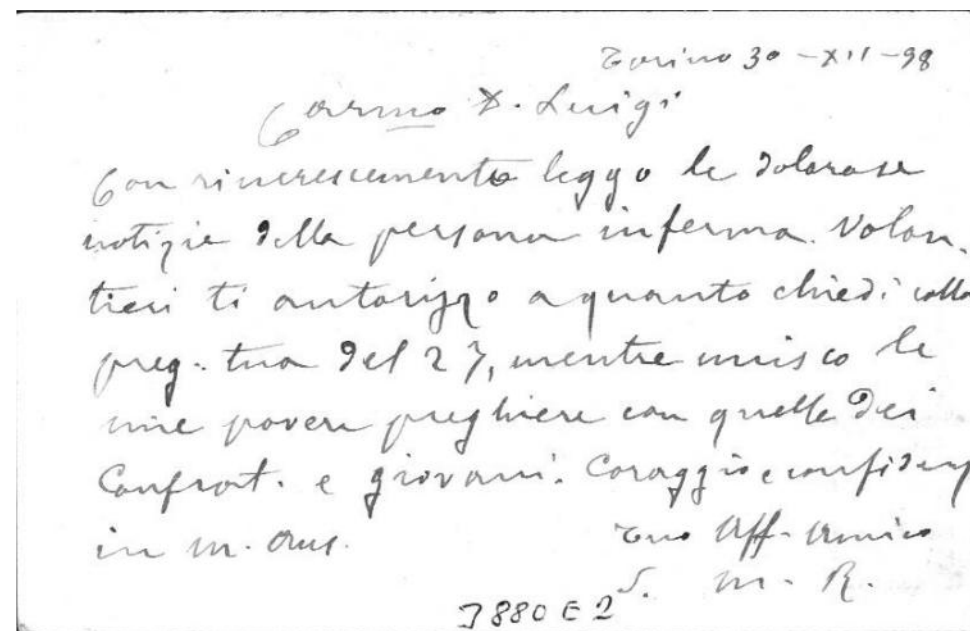 Torino 30-XII-98
Carmo D. Luigi
Con rincrescimento leggo le dolorose
notizie della persona inferma. Volon-
tieri ti autorizzo a quanto chiedi colla
preg. tua del 27, mentre unisco le
mie povere preghiere con quelle dei
Confrat. e giovani. Coraggio e confidenz
in M. Aus.
Tuo Aff. Amico
S. M. R.
3880 E 2